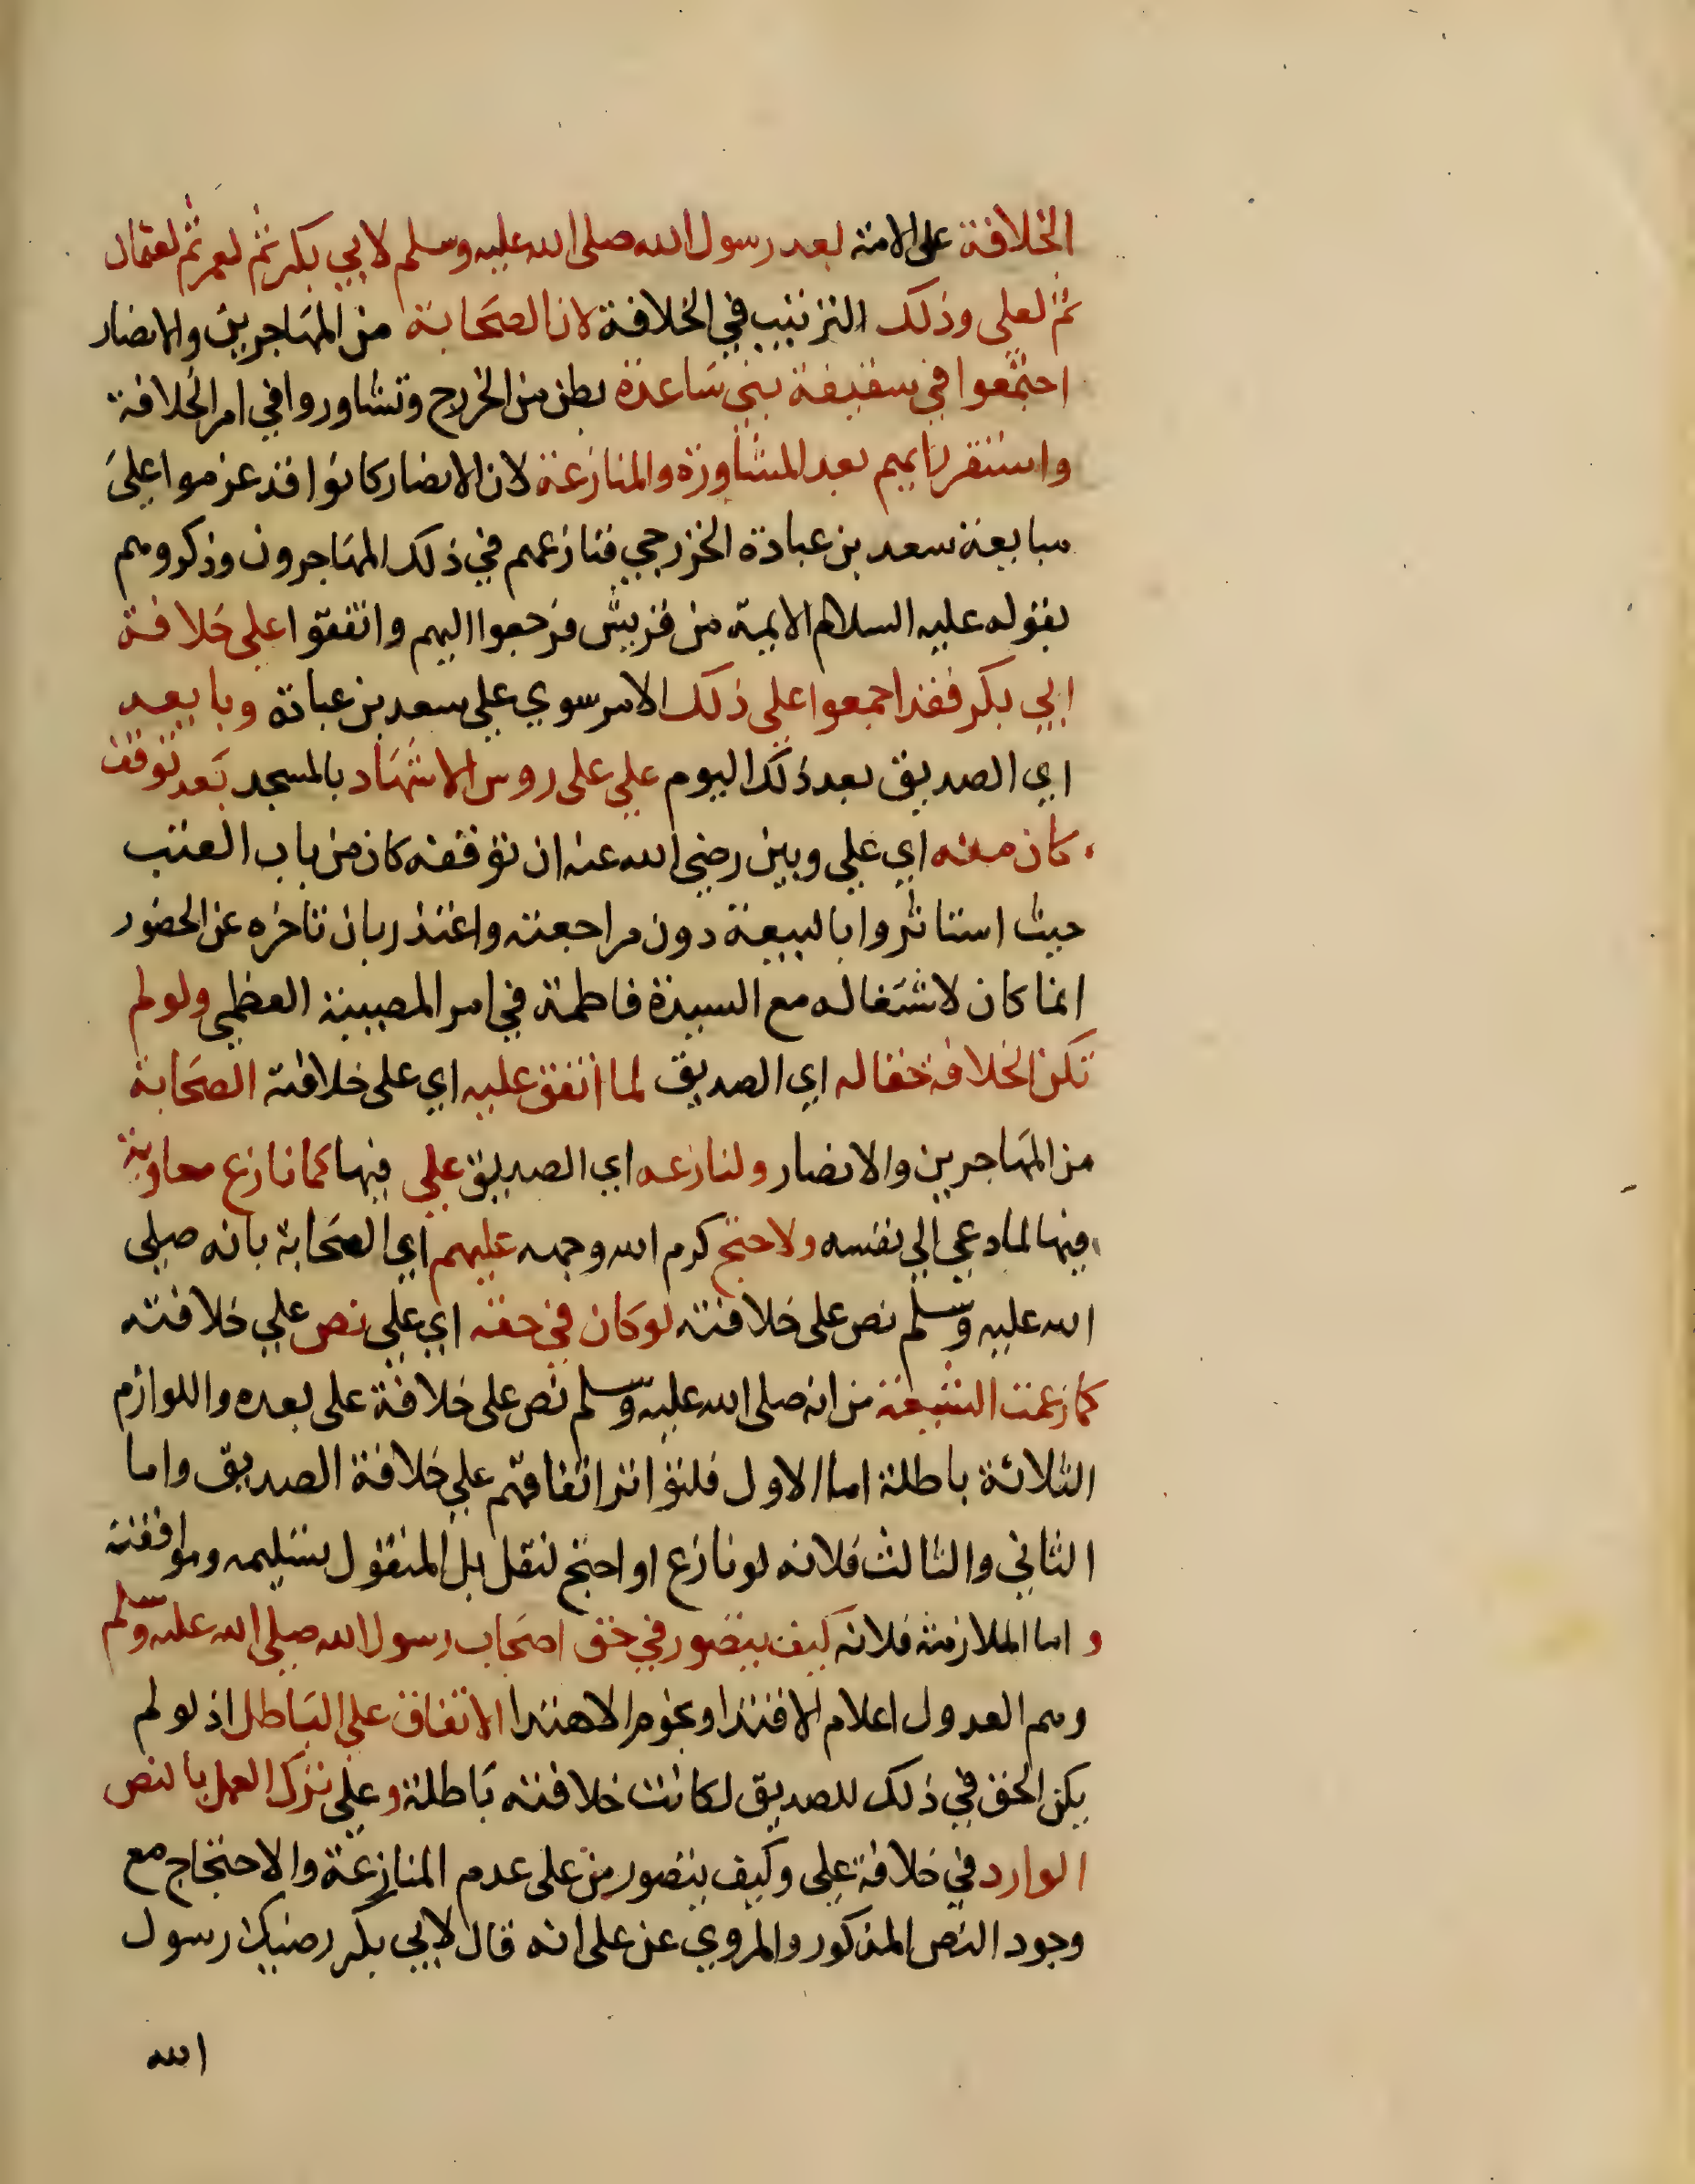 الخلافة على الامة بعد رسول الله صلى الله عليه وسلم لابي بكر ثم لعمر ثم لعثمان
ثم لعلي وذلك الترتيب في الخلافة لان الصحابة من المهاجرين والانصار
اجتمعوا في سقيفة بني ساعدة بطن من الخزرج وتشاوروا في امر الخلافة
واستقر رايهم بعد المشاورة والمنازعة لان الانصار كانوا قد عزموا على
مبايعة سعد بن عبادة الخزرجي فنازعهم في ذلك المهاجرون وذكروهم
بقوله عليه السلام الايمة من قريش فرجعوا اليهم واتفقوا على خلافة
ابي بكر فقد اجمعوا على ذلك الامر سوي علي سعد بن عبادة وبايعه
اي الصديق بعد ذلك اليوم علي على روس الاشهاد بالمسجد بعد توقف
كان منه اي علي وبين رضي الله عنه ان توقفه كان من باب العتب
حيث استاثروا بالبيعة دون مراجعته واعتذر بان تاخره عن الحضور
انما كان لاشتغاله مع السيدة فاطمة في امر المصيبة العظمي ولو لم
تكن الخلافة حقا له اي الصديق لما اتفق عليه اي على خلافته الصحابة
من المهاجرين والانصار ولنازعه اي الصديق علي فيها كما نازع معاوية
فيها لما دعي الي نفسه ولاحتج كرم الله وجهه عليهم اي الصحابة بانه صلى
الله عليه وسلم نص على خلافته لو كان في حقه اي علي نص علي خلافته
كما زعمت الشيعة من انه صلى الله عليه وسلم نص على خلافة على بعده واللوازم
الثلاثة باطلة اما الاول فلتواتر اتفاقهم علي خلافة الصديق واما
الثاني والثالث فلانه لو نازع او احتج لنقل بل المنقول تسليمه وموافقته
و اما الملازمة فلانه كيف يتصور في حق اصحاب رسول الله صلى الله عليه وسلم
وهم العدول اعلام الاقتدا ونجوم الاهتدا الاتفاق على الباطل اذ لو لم
يكن الحق في ذلك للصديق لكانت خلافته باطلة وعلي ترك العمل بالنص
الوارد في خلافة علي وكيف يتصور من على عدم المنازعة والاحتجاج مع
وجود النص المذكور والمروي عن على انه قال لابي بكر رضيك رسول
الله